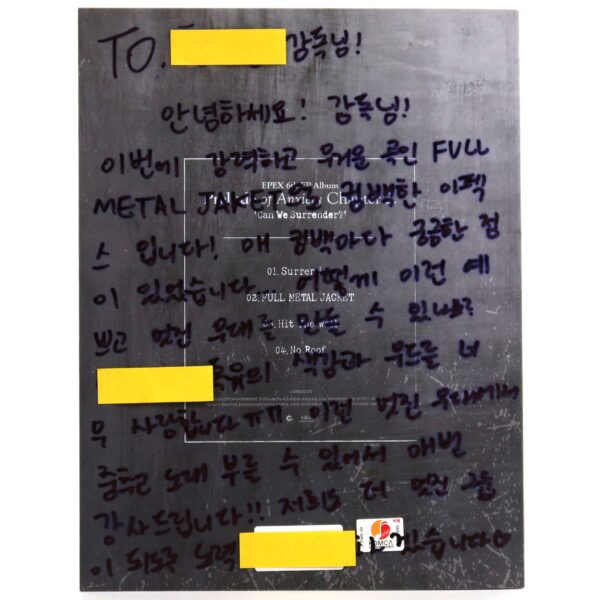 TO. 감독님!
안녕하세요! 감독님!
이번에 강력하고 무거운 곡인 FULL
EPEX 6th EP Album
METAL JAKET으로 컴백한 이펙
of Anxiety Chapter
'Can We Surrender?'
스 입니다! 매 컴백마다 궁금한 점
01. Surrender
이 있었습니다... 어떻게 이런 예
02. FULL METAL JACKET
쁘고 멋진 무대를 만들 수 있나요?
03. Hit The Wall
04. No Roof
특유의 색감과 무드를 너
무 사랑합니다 ㅠㅠ 이런 멋진 무대에서
춤추고 노래 부를 수 있어서 매번
감사드립니다!! 저희도 더 멋진 그룹
KOMCA
이 되도록 노력 겠습니다♡